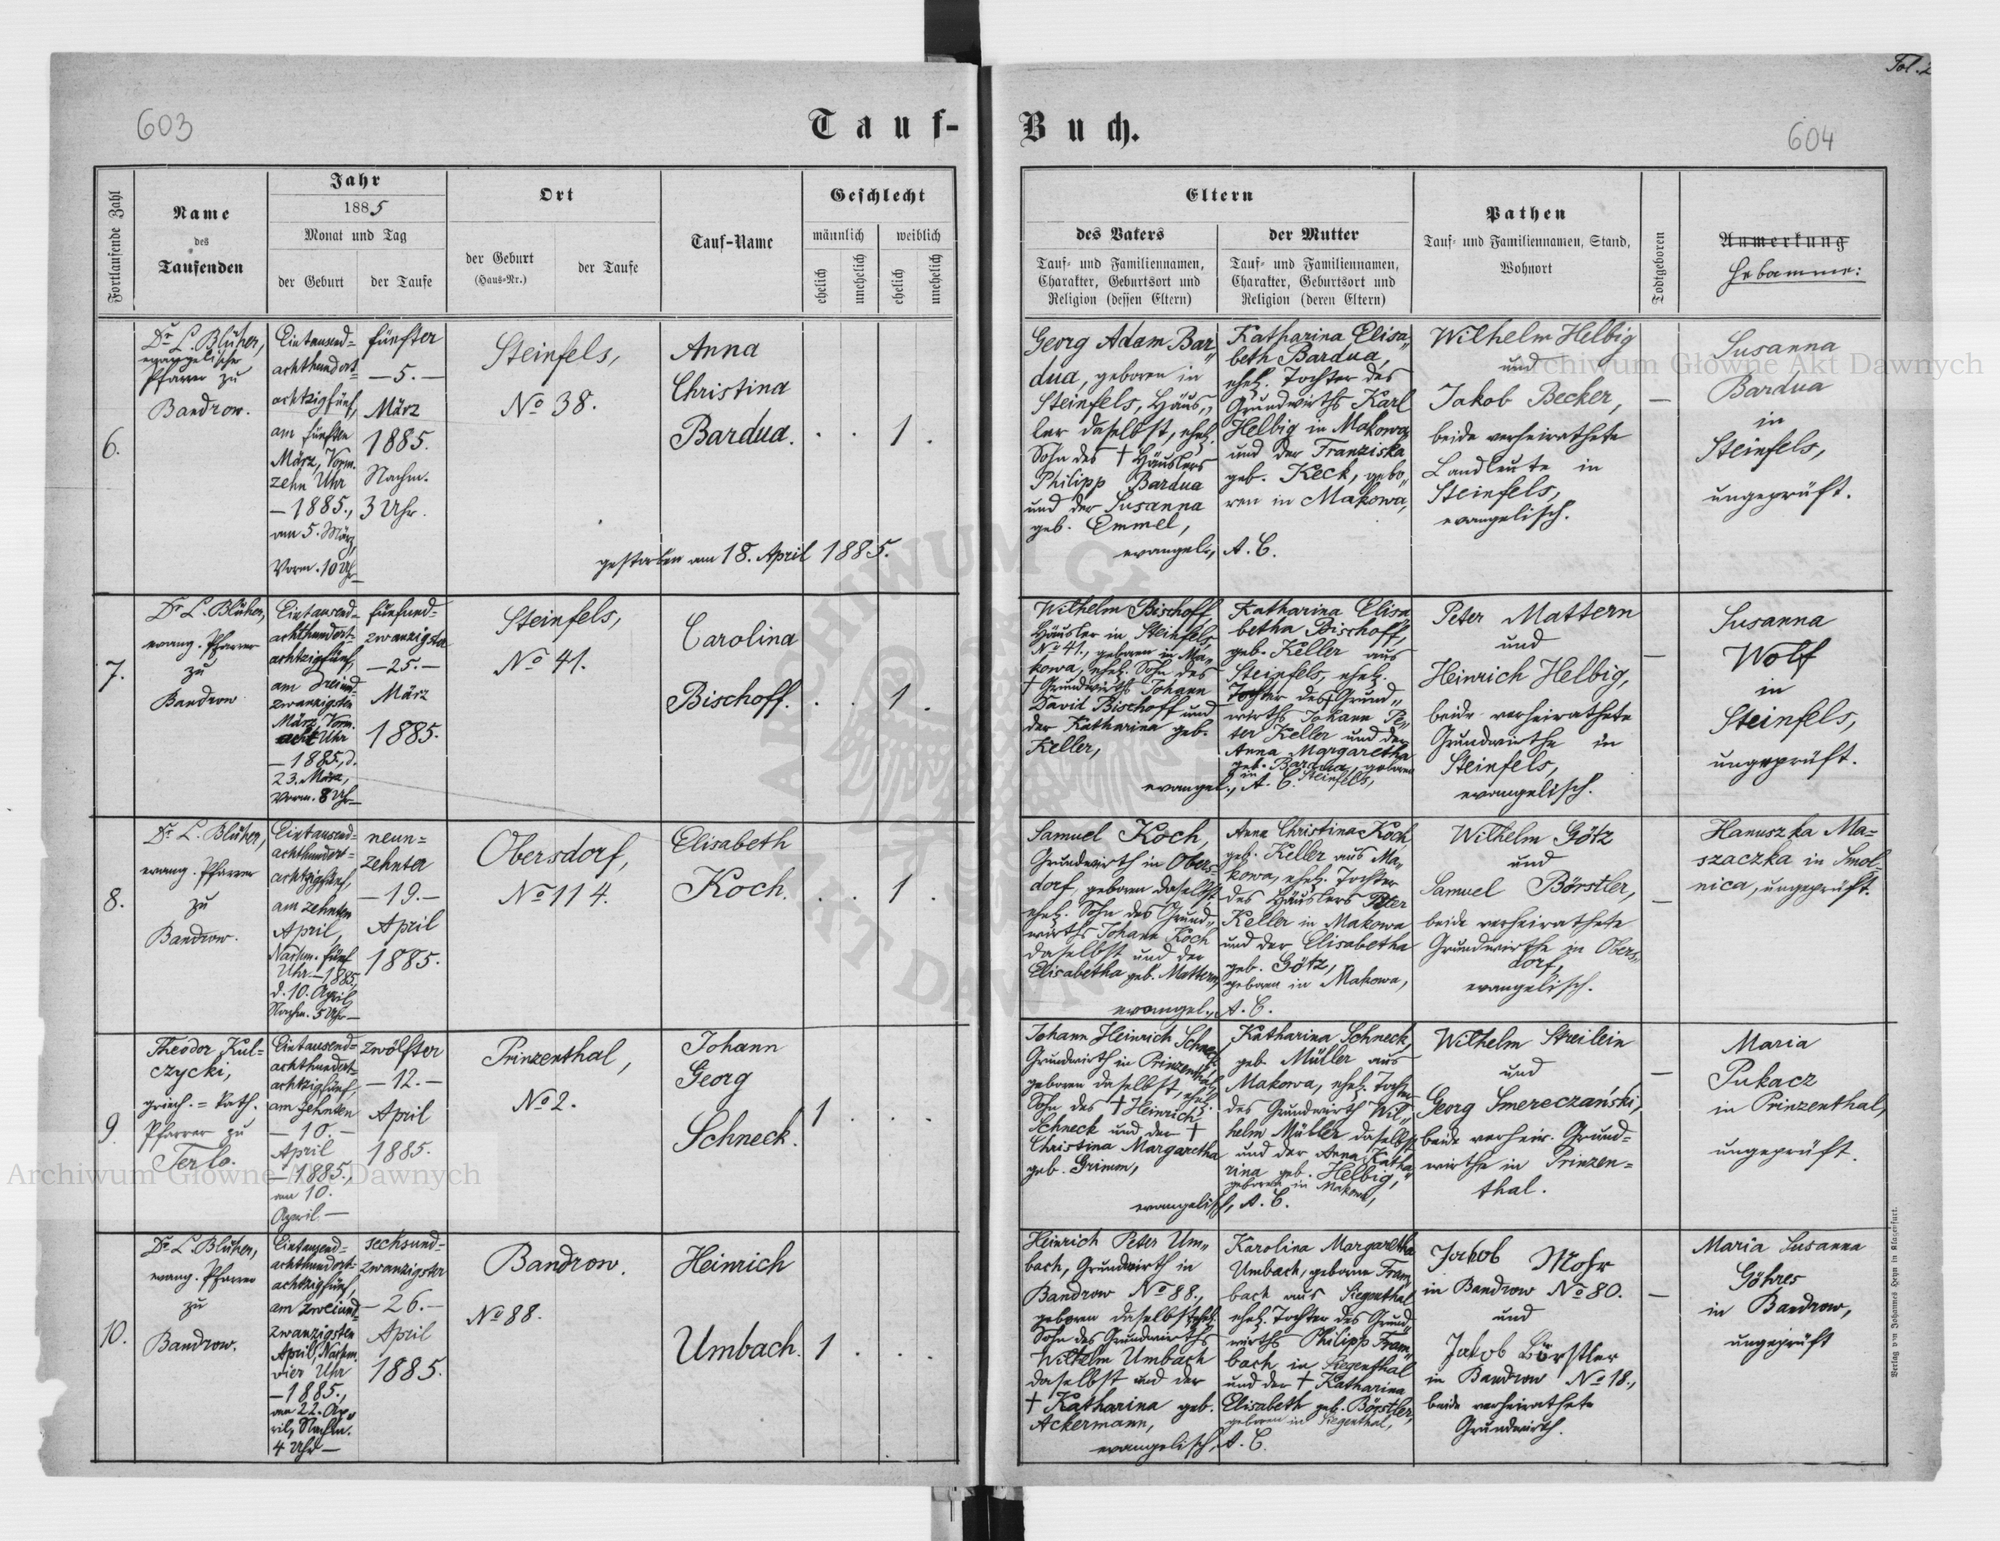 Fol. 2
603
604
Tauf-
Buch.
Fortlaufende Zahl
Name
des
Taufenden
Jahr
1885
Monat und Tag
der Geburt
der Taufe
Ort
der Geburt
(Haus-Nr.)
der Taufe
Tauf-Name
Geschlecht
männlich
weiblich
ehelich
unehelich
ehelich
unehelich
Eltern
des Vaters
Tauf- und Familiennamen,
Charakter, Geburtsort und
Religion (dessen Eltern)
der Mutter
Tauf- und Familiennamen,
Charakter, Geburtsort und
Religion (deren Eltern)
Pathen
Tauf- und Familiennamen, Stand,
Wohnort
Todtgeboren
Anmerkung
Hebamme:
6.
Dr. L. Blüher,
evangelischer
Pfarrer zu
Bandrow.
Eintausend=
achthundert=
achtzigfünf,
am fünften
März, Vorm.
zehn Uhr
— 1885.,
am 5. März,
Vorm. 10 Uhr—
fünfter
— 5. —
März
1885.
Nachm.
3 Uhr.
Steinfels,
No 38.
Anna
Christina
Bardua.
. . 1 .
gestorben am 18. April 1885.
Georg Adam Bar„
dua, geboren in
Steinfels, Häus„
ler daselbst, ehel.
Sohn des † Häuslers
Philipp Bardua
und der Susanna
geb. Emmel,
evangel., A. C.
Katharina Elisa„
beth Bardua,
ehel. Tochter des
Grundwirths Karl
Helbig in Makowa
und der Franziska
geb. Keck, gebo„
ren in Makowa,
Wilhelm Helbig
und
Jakob Becker,
beide verheirathete
Landleute in
Steinfels,
evangelisch.
—
Susanna
Bardua
in
Steinfels,
ungeprüft.
7.
Dr. L. Blüher,
evang. Pfarrer
zu
Bandrow
Eintausend=
achthundert=
achtzigfünf,
am dreiund=
zwanzigsten
März, Vorm.
acht Uhr
— 1885, d.
23. März,
Vorm. 8 Uhr—
fünfund=
zwanzigster
— 25. —
März
1885.
Steinfels,
No 41.
Carolina
Bischoff.
. . 1 .
Wilhelm Bischoff,
Häusler in Steinfels
No 41., geboren in Ma„
kowa, ehel. Sohn des
† Grundwirths Johann
David Bischoff und
der Katharina geb.
Keller,
evangel., A. C.
Katharina Elisa„
betha Bischoff,
geb. Keller aus
Steinfels, ehel.
Tochter des Grund„
wirths Johann Pe„
ter Keller und der
Anna Margaretha
geb. Bardua, geboren
in Steinfels,
Peter Mattern
und
Heinrich Helbig,
beide verheirathete
Grundwirthe in
Steinfels,
evangelisch.
—
Susanna
Wolf
in
Steinfels,
ungeprüft.
8.
Dr. L. Blüher,
evang. Pfarrer
zu
Bandrow.
Eintausend=
achthundert=
achtzigfünf,
am zehnten
April,
Nachm. fünf
Uhr — 1885,
d. 10. April,
Nachm. 5 Uhr—
neun=
zehnter
— 19. —
April
1885.
Obersdorf,
No 114.
Elisabeth
Koch.
. . 1 .
Samuel Koch,
Grundwirth in Obers„
dorf, geboren daselbst,
ehel. Sohn des Grund„
wirths Johann Koch
daselbst und der
Elisabetha geb. Mattern,
evangel., A. C.
Anna Christina Koch
geb. Keller aus Ma„
kowa, ehel. Tochter
des Häuslers Peter
Keller in Makowa
und der Elisabetha
geb. Götz,
geboren in Makowa,
Wilhelm Götz
und
Samuel Börstler,
beide verheirathete
Grundwirthe in Obers„
dorf,
evangelisch.
—
Hanuszka Ma=
szaczka in Smol
nica, ungeprüft.
9.
Theodor Kul=
czycki,
griech. = kath.
Pfarrer zu
Terlo.
Eintausend=
achthundert=
achtzigfünf,
am zehnten
— 10. —
April
— 1885.,
am 10.
April. —
zwölfter
— 12. —
April
1885.
Prinzenthal,
No 2.
Johann
Georg
Schneck.
1 . . .
Johann Heinrich Schneck,
Grundwirth in Prinzenthal,
geboren daselbst, ehel.
Sohn des † Heinrich
Schneck und der †
Christina Margaretha
geb. Grimm,
evangelisch, A. C.
Katharina Schneck,
geb. Müller aus
Makowa, ehel. Tochter
des Grundwirth Wil„
helm Müller daselbst
und der Anna Katha„
rina geb. Helbig,
geboren in Makowa,
Wilhelm Streilein
und
Georg Smereczański,
beide verheir. Grund=
wirthe in Prinzen=
thal.
—
Maria
Pukacz
in Prinzenthal,
ungeprüft.
10.
Dr. L. Blüher,
evang. Pfarrer
zu
Bandrow.
Eintausend=
achthundert=
achtzigfünf,
am zweiund=
zwanzigsten
April, Nachm.
vier Uhr
— 1885.,
am 22. Ap„
ril, Nachm.
4 Uhr —
sechsund=
zwanzigster
— 26. —
April
1885.
Bandrow.
No 88.
Heinrich
Umbach.
1 . . .
Heinrich Peter Um„
bach, Grundwirth in
Bandrow No 88.,
geboren daselbst, ehel.
Sohn des Grundwirths
Wilhelm Umbach
daselbst und der
† Katharina geb.
Ackermann,
evangelisch, A. C.
Karolina Margaretha
Umbach, geborne Fram„
bach aus Siegenthal
ehel. Tochter des Grund„
wirths Philipp Fram„
bach in Siegenthal
und der † Katharina
Elisabeth geb. Börstler,
geboren in Siegenthal,
Jakob Mohr
in Bandrow No 80.
und
Jakob Börstler
in Bandrow No 18.,
beide verheirathete
Grundwirth.
—
Maria Susanna
Göhres
in Bandrow,
ungeprüft
Verlag von Johannes Heyn in Klagenfurt.
Archiwum Główne Akt Dawnych
Archiwum Główne Akt Dawnych